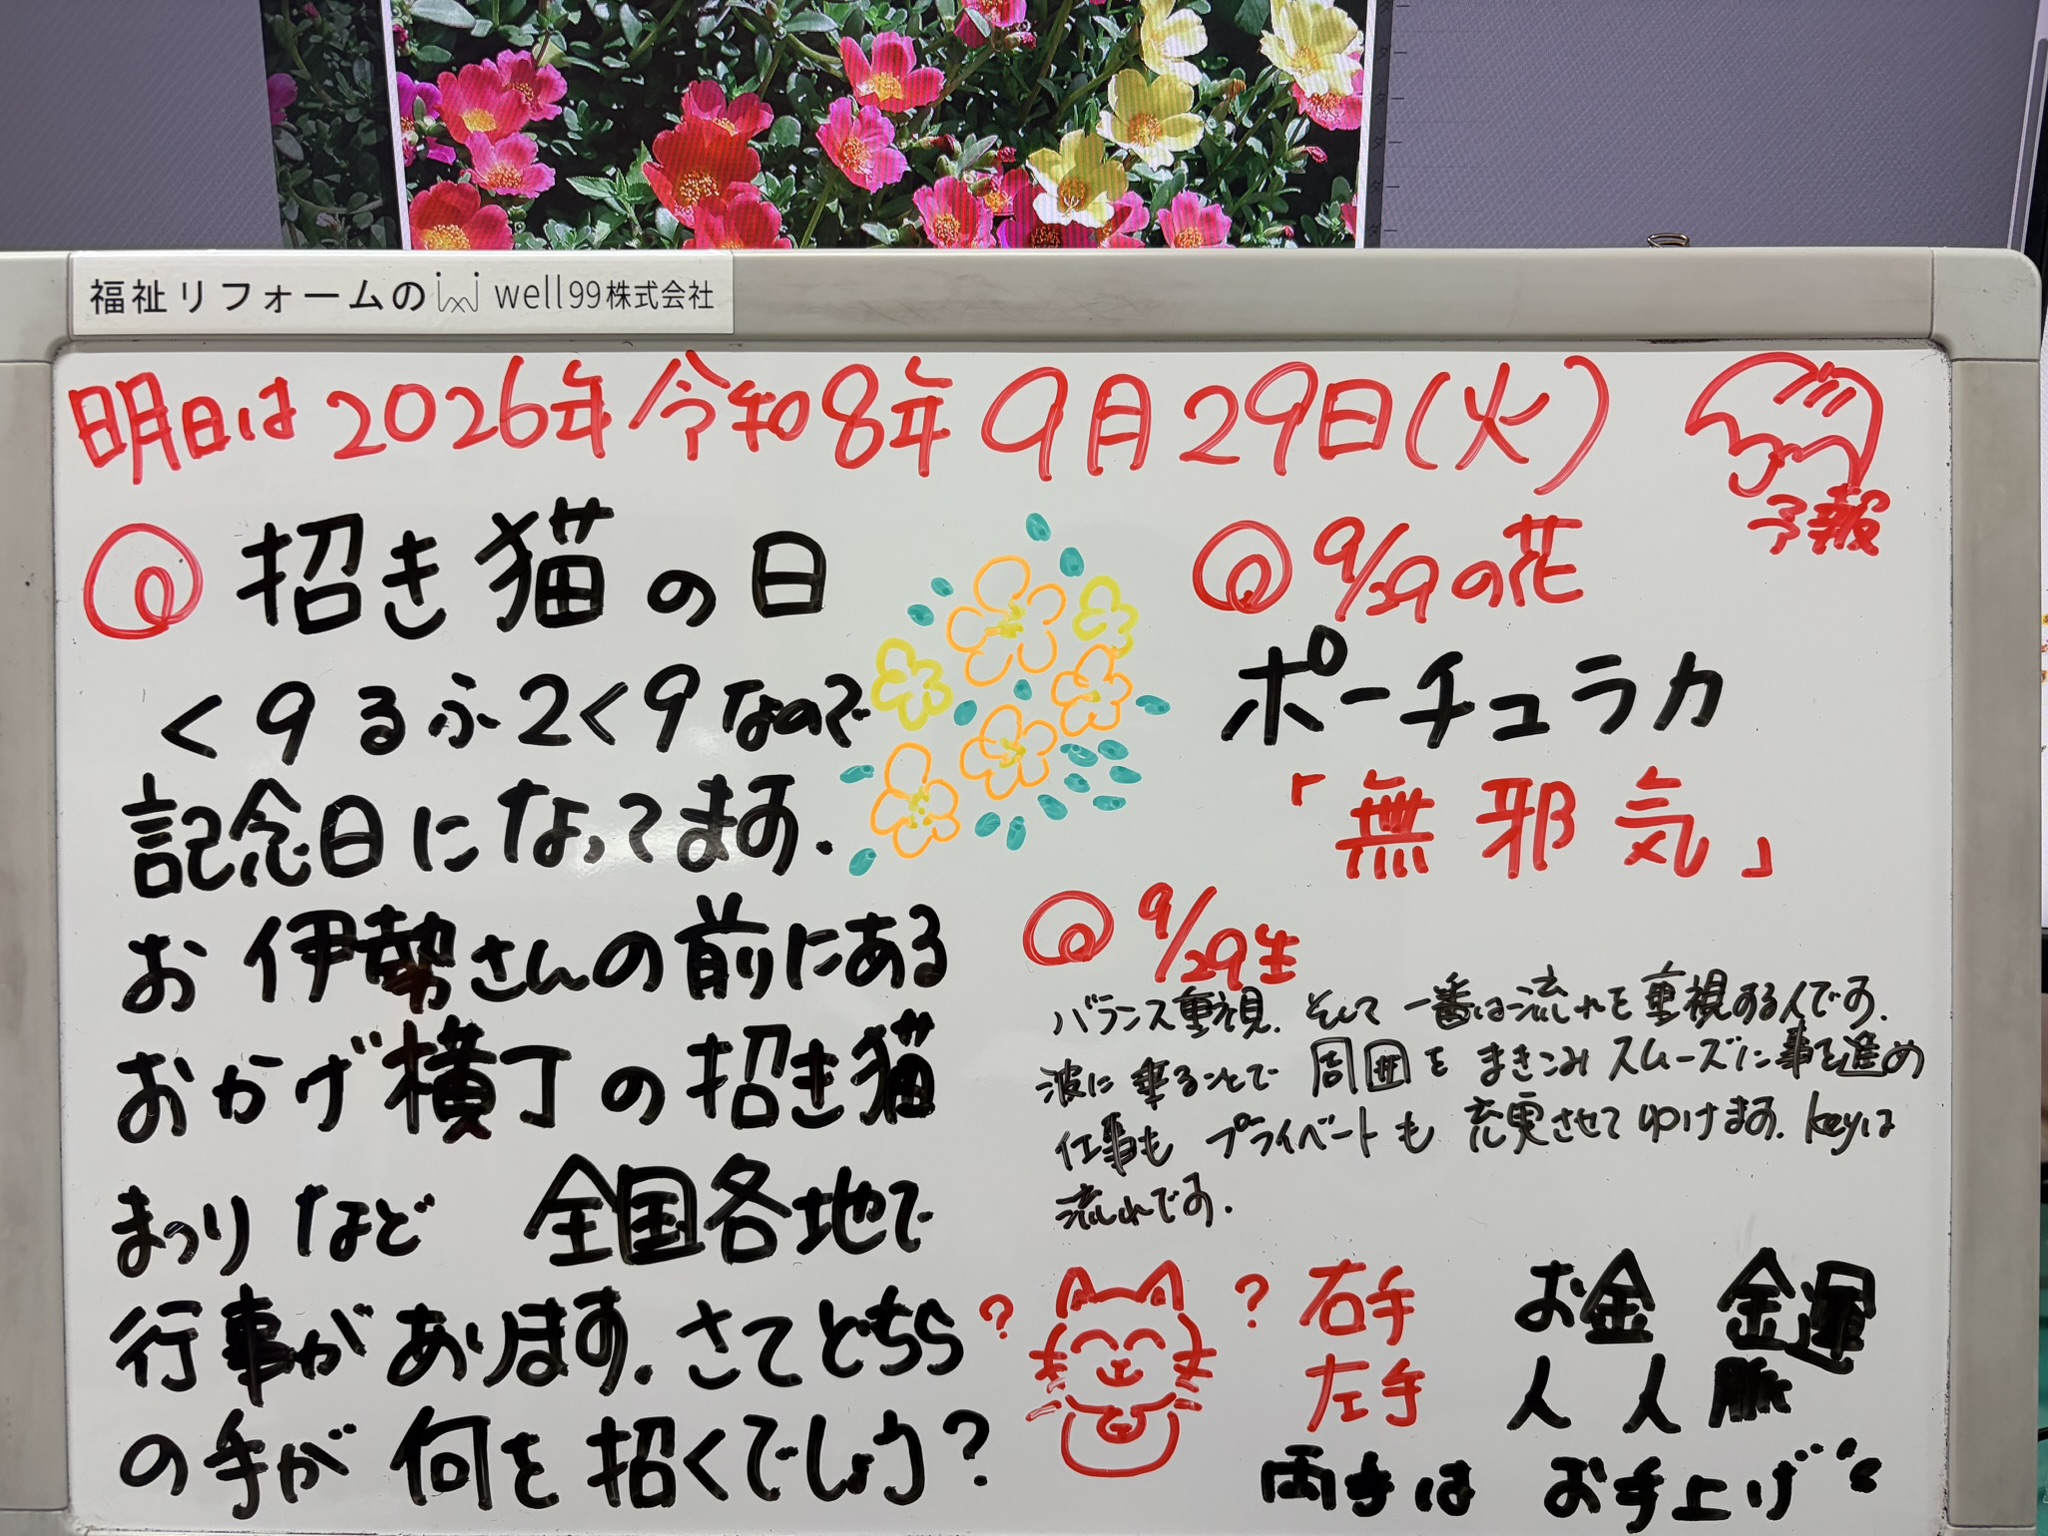 福祉リフォームの well99株式会社
明日は2026年 令和8年 9月29日(火)
予報
招き猫の日
く9るふ2く9なので
記念日になってます.
お伊勢さんの前にある
おかげ横丁の招き猫
まつりなど 全国各地で
行事があります. さてどちら
の手が何を招くでしょう?
9/29の花
ポーチュラカ
「無邪気」
9/29生
バランス重視. そして一番は流れを重視する人です.
波に乗ることで 周囲をまきこみスムーズに事を進め
仕事も プライベートも 充実させてゆけます. keyは
流れです.
? ?
右手 お金 金運
左手 人 人脈
両手は お手上げ